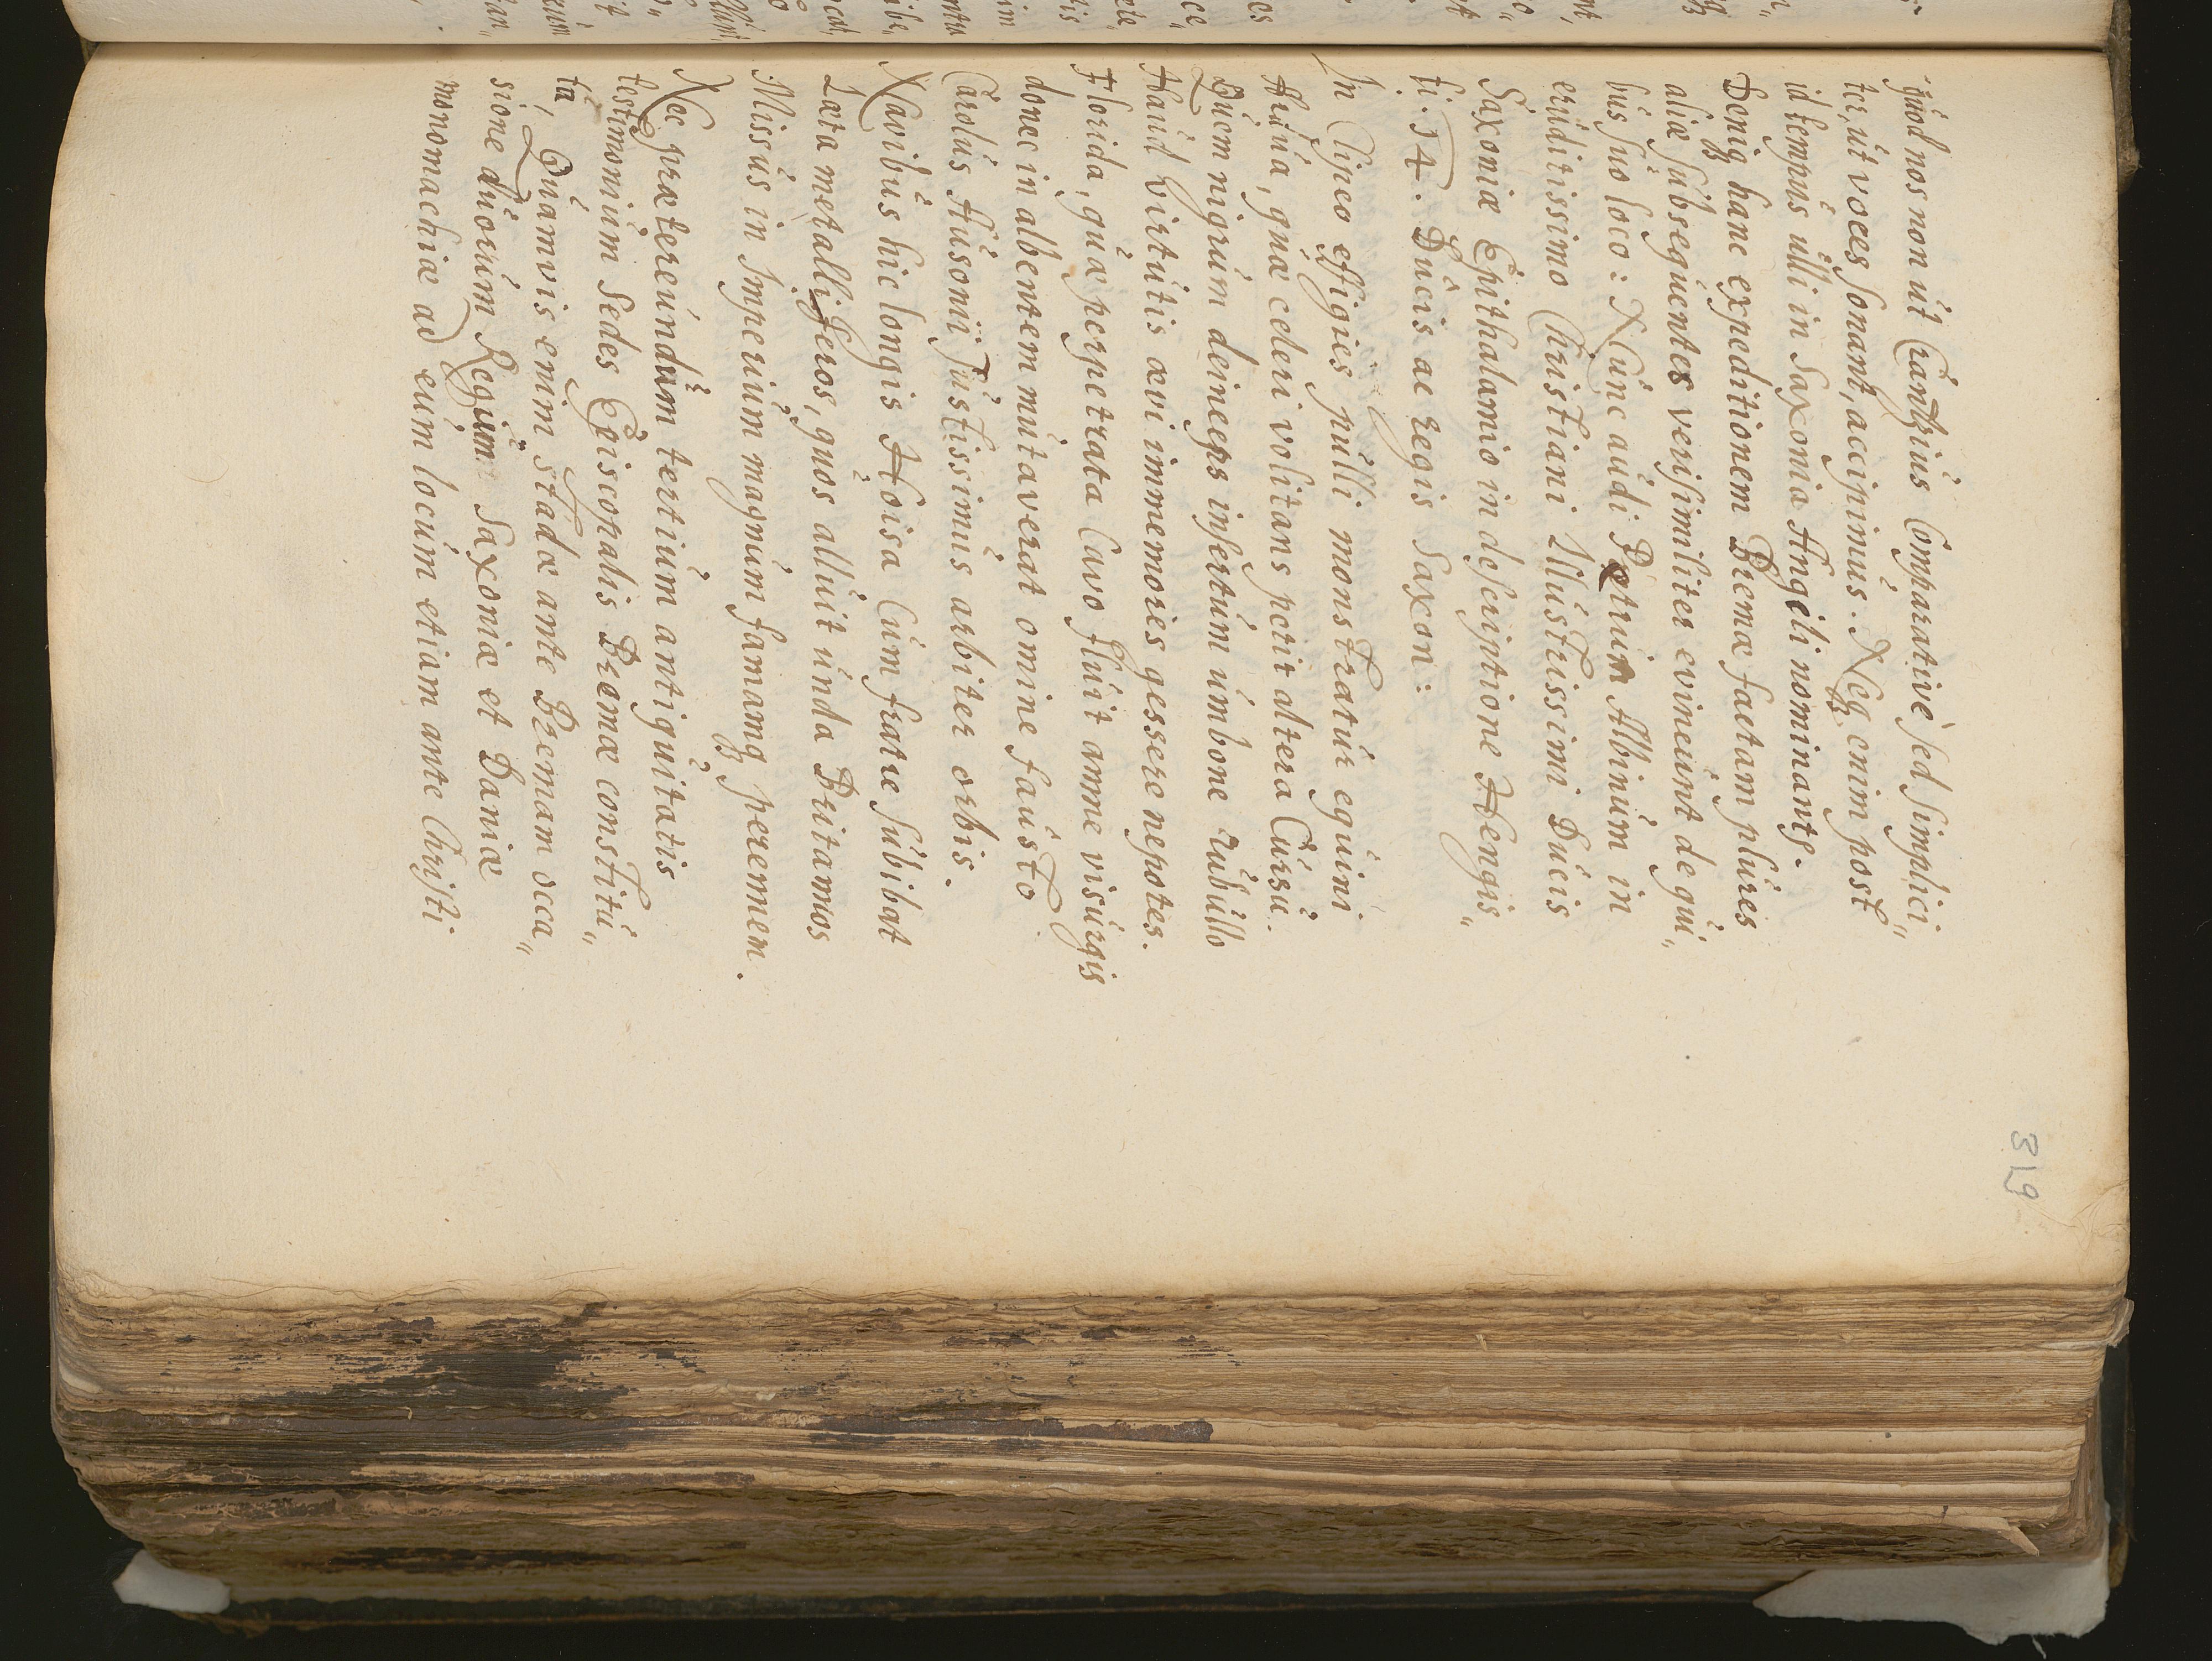 319
quod nos non ut Crantzius Comparativè sed simplici„
ter, ut voces sonant, accipimus. Neq₃ enim post
id tempus ulli in Saxonia Angili nominantꝭ.
Deniq₃ hanc expeditionem Bremæ factam plures
aliæ subsequentes verisimiliter evincunt de qui„
bus suo loco: Nunc audi Petrum Albinum in
eruditissimo Christiani Illustrissimi Ducis
Saxoniæ Epithalamio in descriptione Hengis„
ti. J4. Ducis ac regis Saxon:
In Clipeo effigies pulli monstratur equini
fulva, quæ celeri volitans petit altera Cursu.
Quem nigrum deinceps insertum umbone rubello
Haud virtutis ævi immemores gessere nepotes.
Florida, quæ perpetrata Cavo fluit amne visurgis
donec in albentem mutaverat omine fausto
Carolus Ausonij Justissimus arbiter orbis.
Navibus hic longis Hoisa Cum fratre subibat
Læta metalliferos, quos alluit unda Britannos
Missus in Imperium magnum famamq₃ perennem.
Nec prætereundum tertium antiquitatis
testimonium Sedes Episcopalis Bremæ constitu„
ta, Quamvis enim Stadæ ante Bremam occa„
sione duorum Regum Saxoniæ et Daniæ
monomachiæ ad eum locum etiam ante Christi